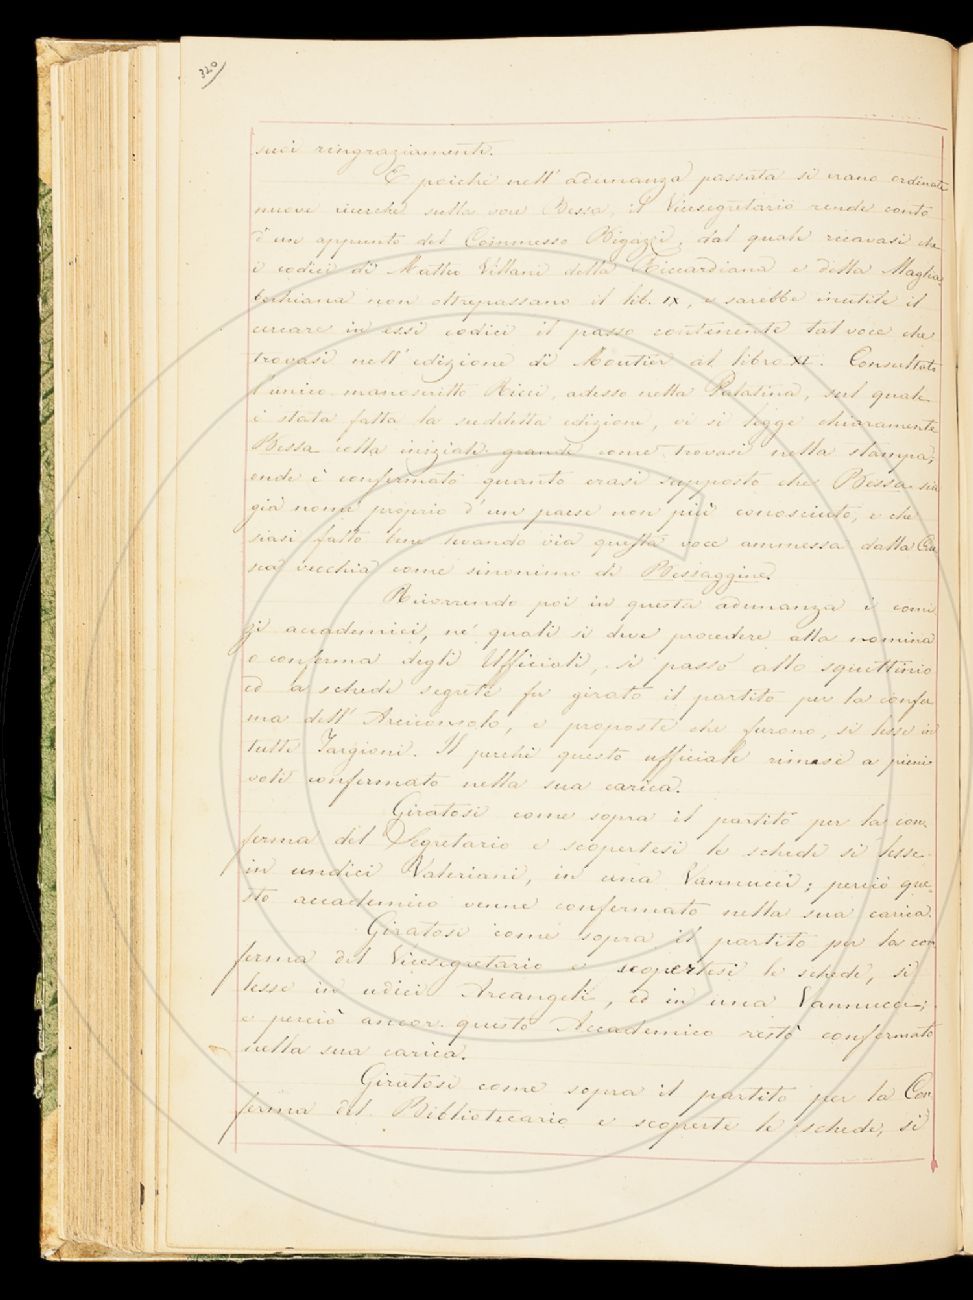 320
suoi ringraziamenti.
E poichè nell' adunanza passata si erano ordinate
nuove ricerche sulla voce Bessa, il Vicesegretario rende conto
d'un appunto del Commesso Bigazzi, dal quale ricavasi che
i codici di Matteo Villani della Riccardiana e della Maglia-
bechiana non oltrepassano il lib. IX, e sarebbe inutile il
cercare in essi codici il passo contenente tal voce che
trovasi nell' edizione di Moutier al libro XI. Consultato
l'unico manoscritto Ricci, adesso nella Palatina, sul quale
è stata fatta la suddetta edizione, vi si legge chiaramente
Bessa colla iniziale grande come trovasi nella stampa;
onde è confermato quanto erasi supposto che Bessa sia
già nome proprio d'un paese non più conosciuto, e che
siasi fatto bene levando via questa voce ammessa dalla Cru
sca vecchia come sinonimo di Bessaggine.
Ricorrendo poi in questa adunanza i comi
zi accademici, ne' quali si deve procedere alla nomina
o conferma degli Ufficiali, si passò allo squittinio
ed a schede segrete fu girato il partito per la confer
ma dell' Arciconsolo, e proposte che furono, si lesse in
tutte Targioni. Il perchè questo ufficiale rimase a pieni
voti confermato nella sua carica.
Giratosi come sopra il partito per la con-
ferma del Segretario e scopertesi le schede si lesse
in undici Valeriani, in una Vannucci; perciò que-
sto accademico venne confermato nella sua carica.
Giratosi come sopra il partito per la con
ferma del Vicesegretario e scopertesi le schede, si
lesse in udici Arcangeli, ed in una Vannucci;
e perciò ancor questo Accademico restò confermato
nella sua carica.
Giratosi come sopra il partito per la Con
ferma del Bibliotecario e scoperte le schede, si